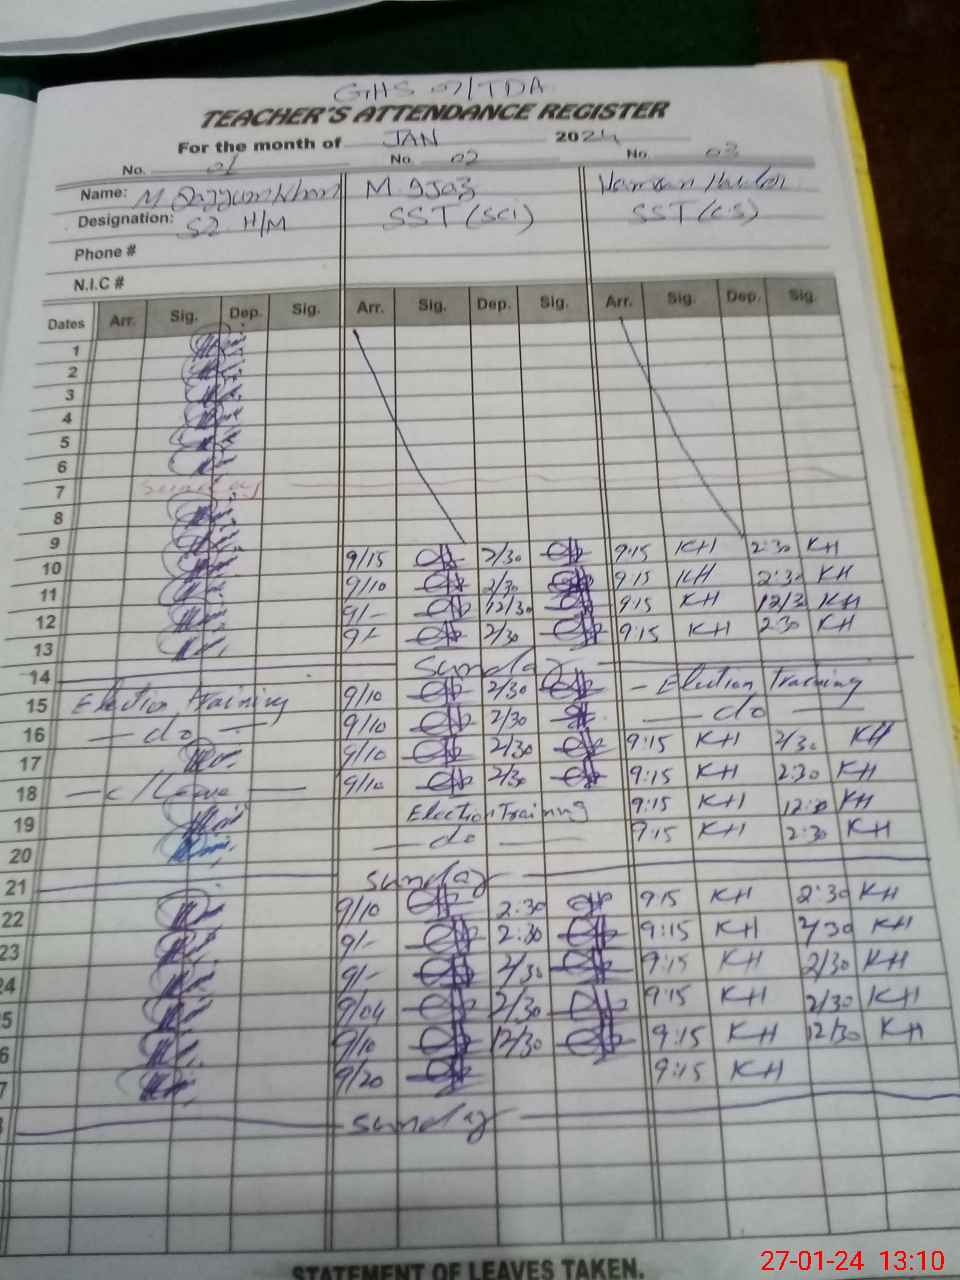 GHS 07/TDA
TEACHER'S ATTENDANCE REGISTER
For the month of JAN 2024
No. 01 No. 02 No. 03
Name: M M. Ijaz
Designation: H/M SST (SCi) SST (C.S)
Phone #
N.I.C #
Dates Arr. Sig. Dep. Sig. Arr. Sig. Dep. Sig. Arr. Sig. Dep. Sig.
1
2
3
4
5
6
7 Sunday
8
9
10 9/15 2/30 9:15 KH 2:30 KH
11 9/10 2/30 9:15 KH 2:30 KH
12 9/- 12/30 9:15 KH 12/3 KH
13 9/- 2/30 9:15 KH 2:30 KH
14 Sunday
15 Election training 9/10 2/30 - Election Training
16 - do - 9/10 2/30 - do -
17 9/10 2/30 9:15 KH 2/30 KH
18 - c/Leave - 9/10 2/30 9:15 KH 2:30 KH
19 Election Training 9:15 KH KH
20 - do - 9:15 KH 2:30 KH
21 Sunday
22 9/10 2:30 9:15 KH 2:30 KH
23 9/- 2:30 9:15 KH 2/30 KH
24 9/- 2/30 9:15 KH 2/30 KH
5 9/04 2/30 9:15 KH 2/30 KH
6 9/10 12/30 9:15 KH 12/30 KH
7 9/20 9:15 KH
Sunday
STATEMENT OF LEAVES TAKEN.
27-01-24 13:10